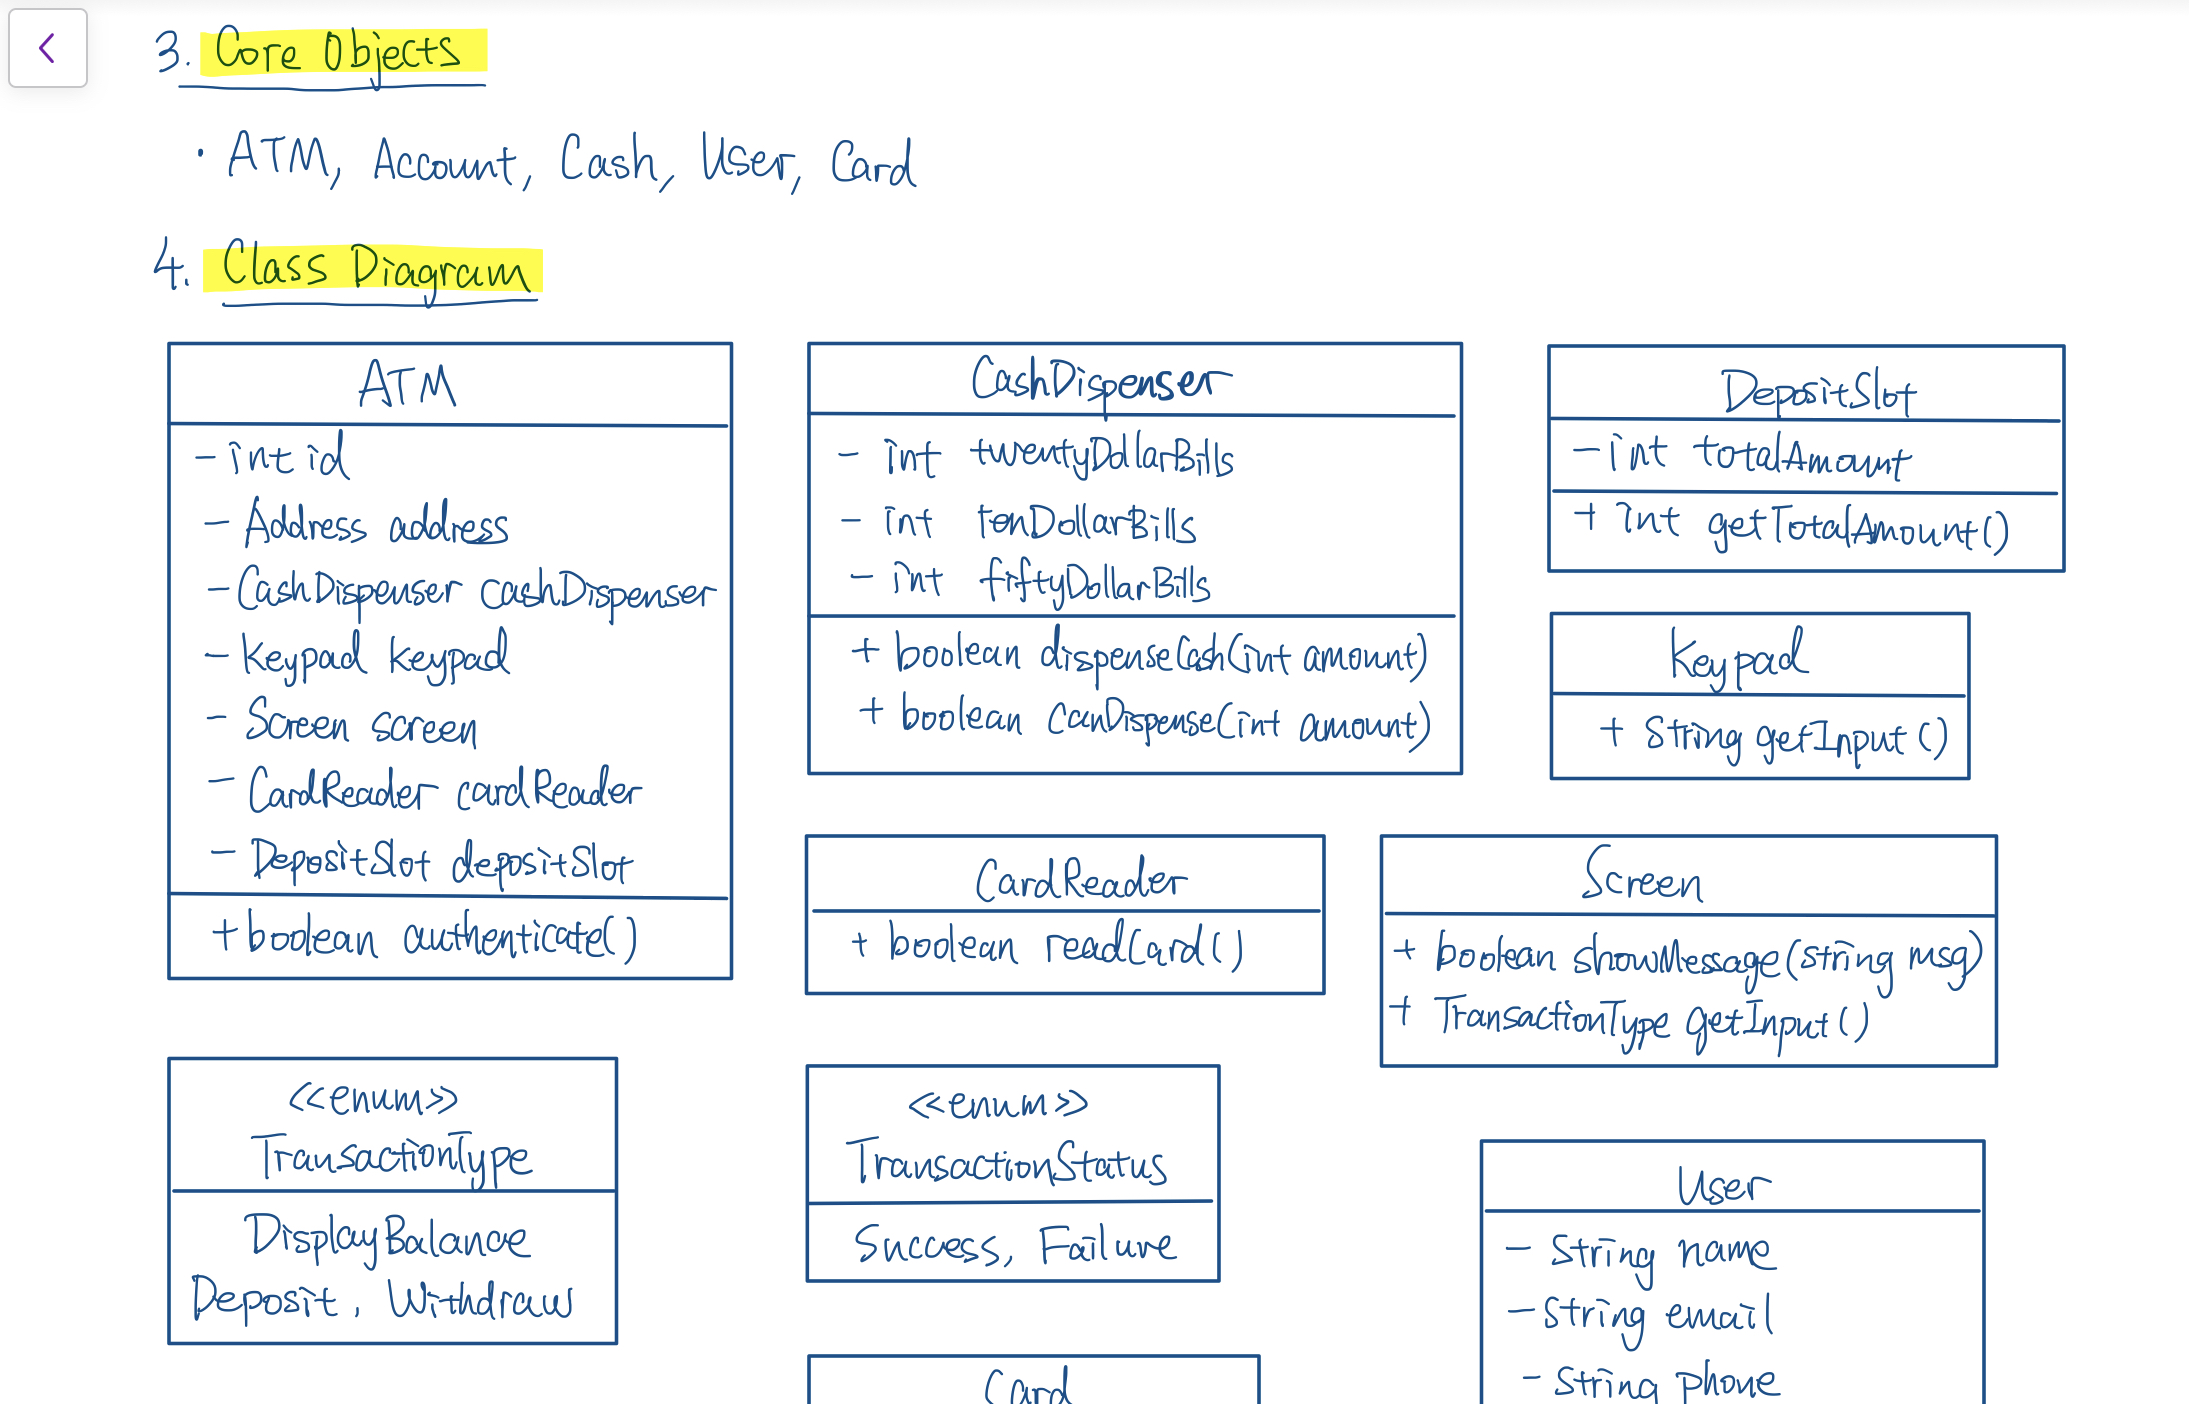 3. Core Objects
· ATM, Account, Cash, User, Card
4. Class Diagram
ATM
- int id
- Address address
- CashDispenser cashDispenser
- Keypad keypad
- Screen screen
- CardReader cardReader
- DepositSlot depositSlot
+ boolean authenticate()
CashDispenser
- int twentyDollarBills
- int tenDollarBills
- int fiftyDollarBills
+ boolean dispenseCash(int amount)
+ boolean canDispense(int amount)
DepositSlot
- int totalAmount
+ int getTotalAmount()
Keypad
+ String getInput()
CardReader
+ boolean readCard()
Screen
+ boolean showMessage(string msg)
+ TransactionType getInput()
<<enum>>
TransactionType
DisplayBalance
Deposit, Withdraw
<<enum>>
TransactionStatus
Success, Failure
User
- String name
- String email
- String phone
Card